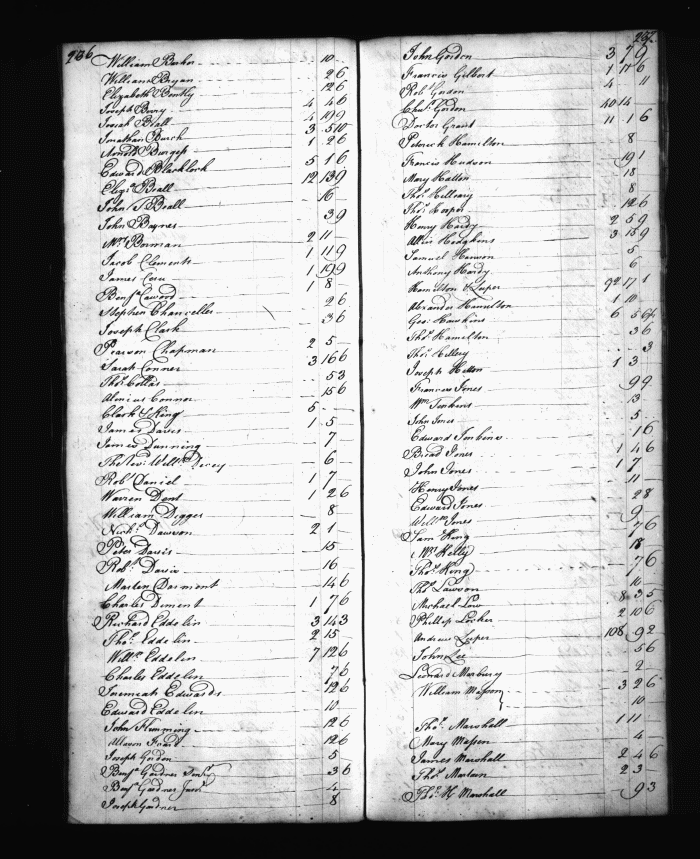 236
William Barker - 10 -
William Bryan - 2 6
Elizabeth Bentley 12 6
Joseph Berry 4 4 6
Josiah Beall 4 19 9
Jonathan Burch 3 5 10
Burgess 1 2 6
Edward Blacklock 5 1 6
Eliz Beall 12 13 9
John S Beall 16
John Baynes 3 9
Mrs Borman 2 11 -
Jacob Clements 1 11 9
James 1 19 9
Benja Cawood 1 8
Stephen Chancellor 2 6
Joseph Clark 3 6
Pearson Chapman 2 5 -
Sarah Conner 3 16 6
Thos Collis 5 3
Conner 15 6
Clark & King 5 - -
James Davis 1 5
James Dunning 7
The Revd Willm Derey 6
Robt Daniel 1 7
Warren Dent 1 2 6
William Digges 8
Nichs Dawson 2 1 -
Peter Davis 15
Robt Davis 16
Marten Dormont 14 6
Charles Dement 1 7 6
Richard Eddelin 3 14 3
Thos Eddelin 2 15 -
Willm Eddelin 7 12 6
Charles Eddelin 7 6
Jeremiah Edwards 12 6
Edward Eddelin 10
John Flemming 12 6
12 6
Joseph Gordon 5
Benja Gardner Senr 3 6
Benja Gardner Junr 4
Joseph Gardner 8
237
John Gordon 3 7 9
Francis Gilbert 1 17 6
Robt Gordon 4 11
Chas Gordon 40 14
Doctor Grant 11 1 6
Paterick Hamilton 8
Francis Hudson 19 1
Mary Hatton 18
Thos Hilleary 8
Thos Hooper 12 6
Henry Hardy 2 5 9
Hodgkins 3 15 9
Samuel Hanson 5
Anthony Hardy 6
Hamilton & Leeper 92 17 1
Alexander Hamilton 1 10
Geo: Hawkins 6 5 6½
Thos Hamilton 3 6
Thos Hellery 3
Joseph Hatton 1 3
Francis Jones 9 9
Wm Jenkens 13
John Jones 5
Edward Jenkins 16
Bread Jones 1 4 6
John Jones 1 7
Henry Jones 11
Edward Jones 2 8
Willm Jones 9
Saml King 7 6
Wm Kelly 18
Thos King 7 6
Thos Lawson 16
Michael Low 8 3 5
Phillip Locker 2 10 6
Andrew Leeper 108 9 2
John Lee 5 6
Leonard Marbury 2
William Masson 3 2 6
10
Thos Marshall 1 11
Mary Masson 4
James Marshall 2 4 6
Thos Martain 2 3
Thos H Marshall 9 3